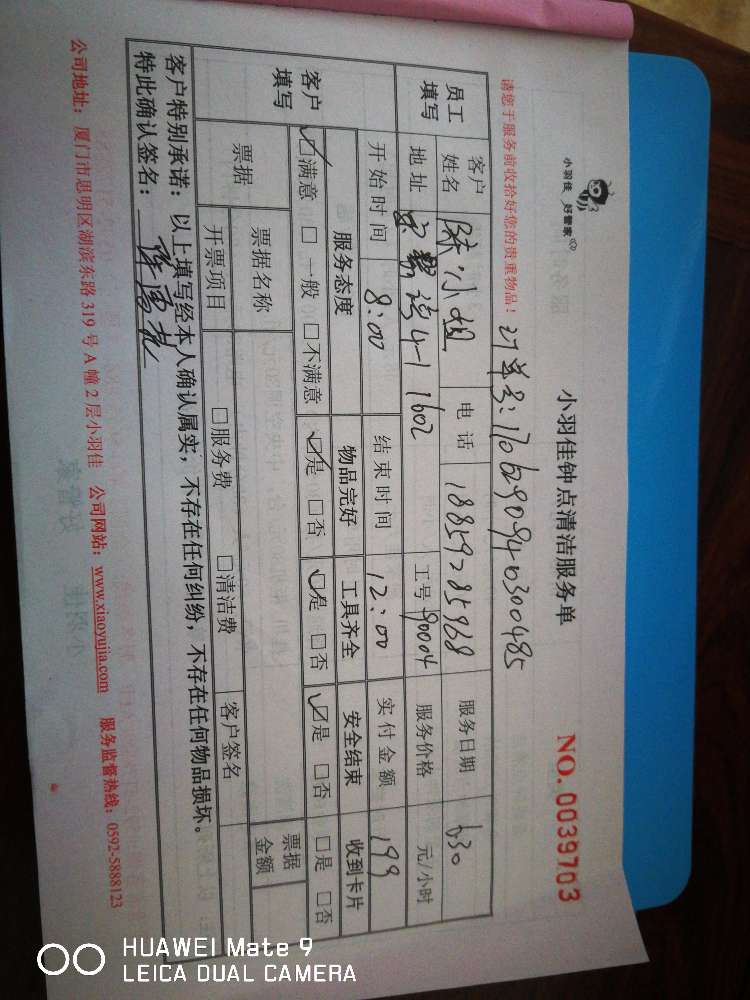 小羽佳 好管家
小羽佳钟点清洁服务单
NO. 0039703
请您于服务前收拾好您的贵重物品！
订单号：1706290946300485
员工填写
客户姓名 陈小姐 电话 18859285968 服务日期： 630
地址 4-1 1602 工号 90004 服务价格 元/小时
客户填写
开始时间 8:00 结束时间 12:00 实付金额 199
服务态度 物品完好 工具齐全 安全结束 收到卡片
☑满意 □一般 □不满意 ☑是 □否 ☑是 □否 ☑是 □否 □是 □否
票据 票据名称 票据金额
开票项目 □服务费 □清洁费 客户签名
客户特别承诺：以上填写经本人确认属实，不存在任何纠纷，不存在任何物品损坏。
特此确认签名：
公司地址：厦门市思明区湖滨东路 319 号 A 幢 2 层小羽佳 公司网站：www.xiaoyujia.com 服务监督热线：0592-5888123
HUAWEI Mate 9
LEICA DUAL CAMERA